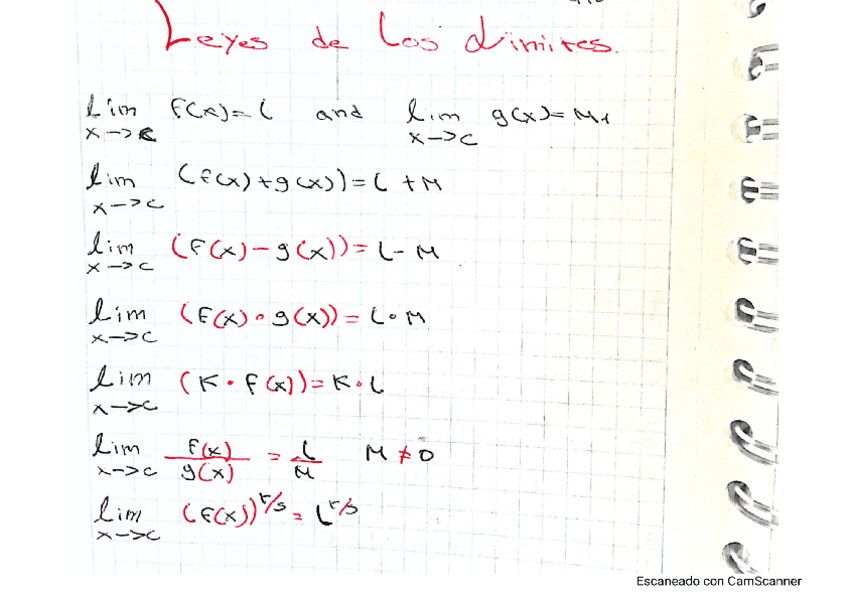 Leyes de Los Limites.
lim x->c f(x)=L and lim x->c g(x)=M
lim x->c (f(x)+g(x))=L+M
lim x->c (f(x)-g(x))=L-M
lim x->c (f(x)•g(x))=L•M
lim x->c (K•f(x))=K•L
lim x->c f(x)/g(x) = L/M M≠0
lim x->c (f(x))^r/s = L^r/s
Escaneado con CamScanner